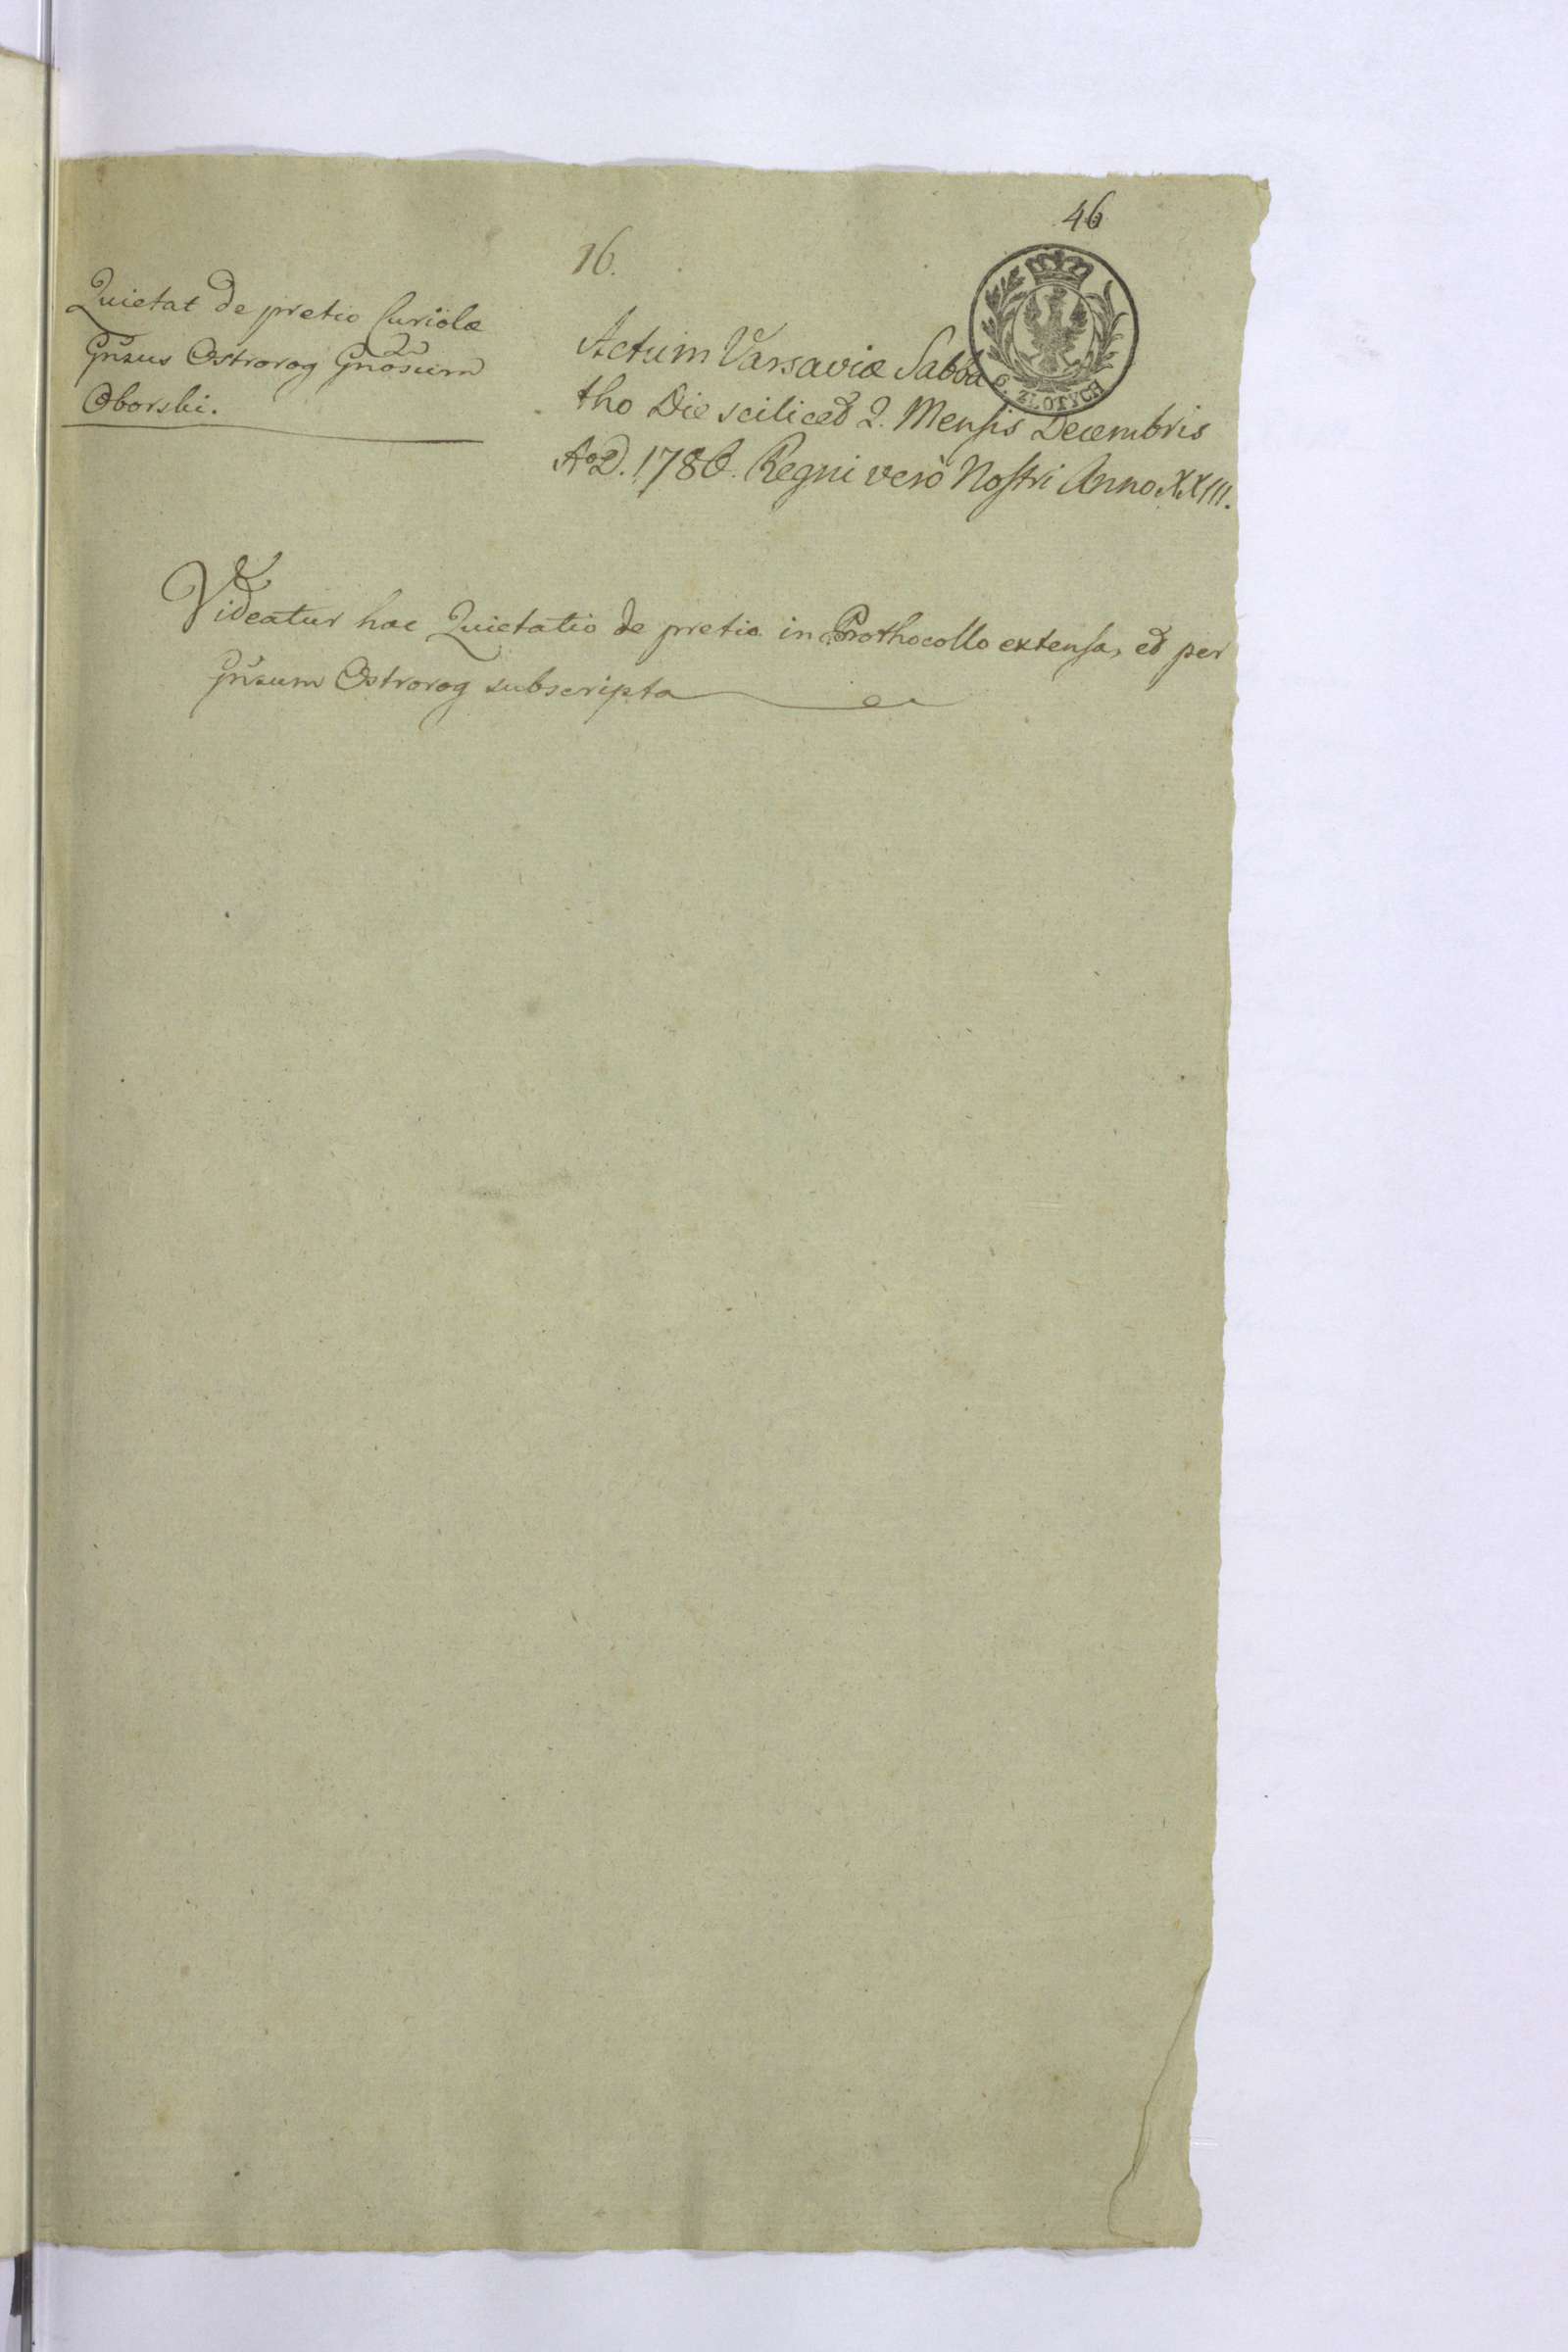 46
16.
Quietat de pretio Curiolæ
Gn̄sus Ostrorog Gn̄osum
Oborski.
Actum Varsaviæ Sabba
tho Die scilicet 2. Mensis Decembris
AoD. 1786. Regni vero Nostri Anno XXIII.
6. ZŁOTYCH
Videatur hac Quietatio de pretio in Prothocollo extensa, et per
Gn̄sum Ostrorog subscripta